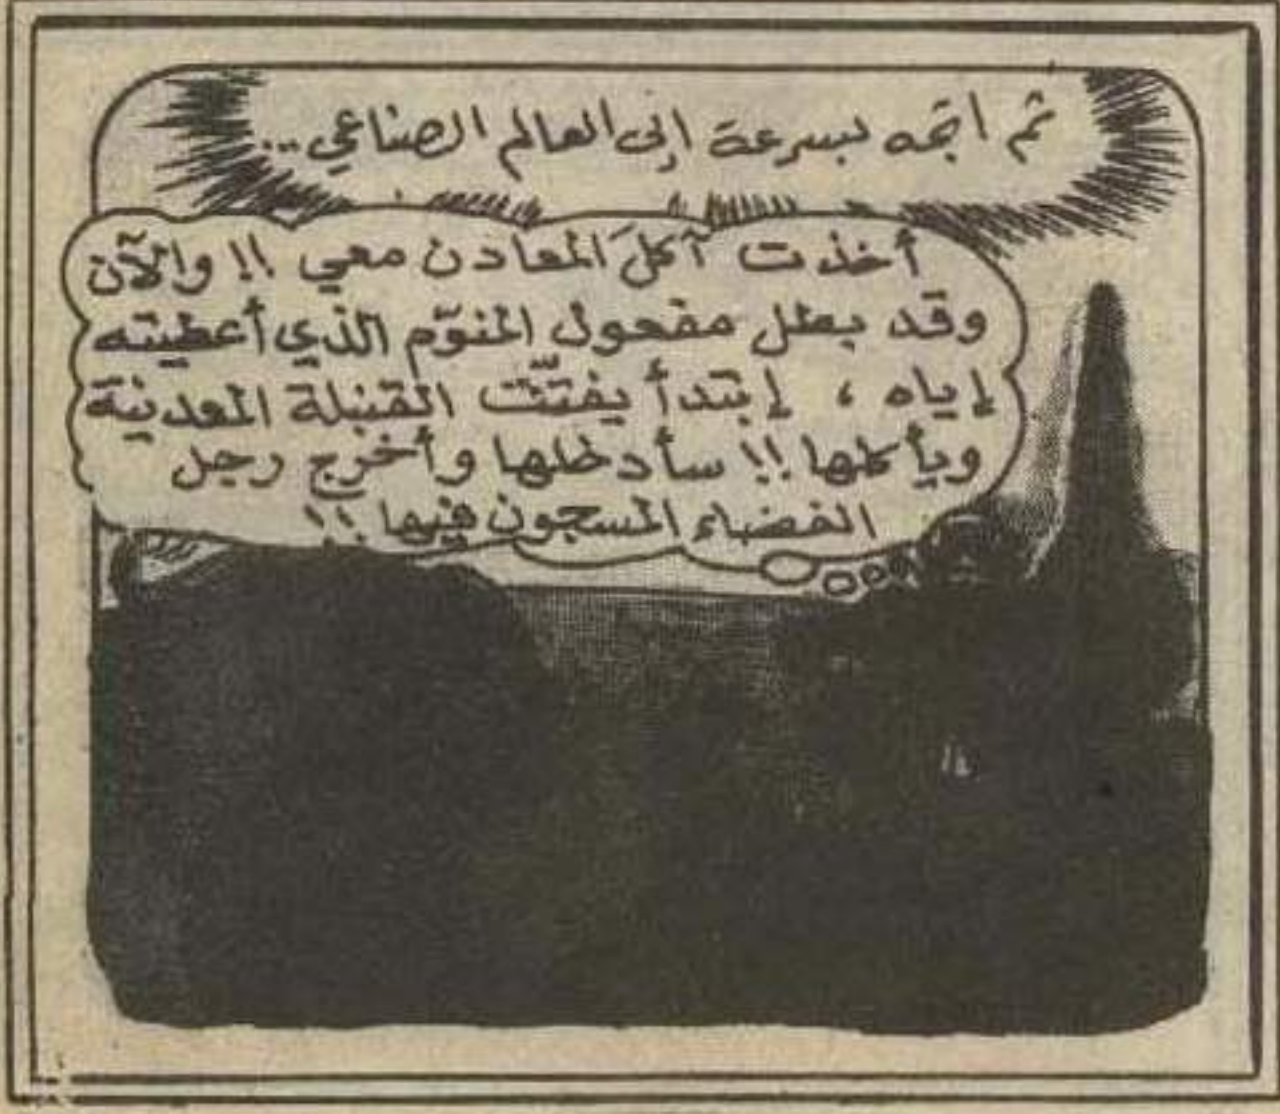 ثم اتجه بسرعة إلى العالم الصناعي...
أخذت آكلَ المعادن معي !! والآن
وقد بطل مفعول المنوّم الذي أعطيته
إياه ، إبتدأ يفتّت القنبلة المعدنية
ويأكلها !! سأدخلها وأخرج رجل
الفضاء المسجون فيها !!